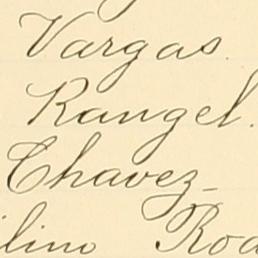 Vargas.
Rangel.
Chavez
lino Rod